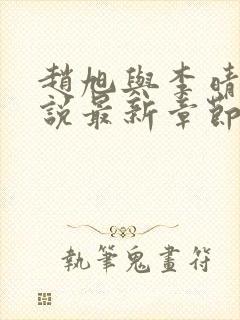 趙旭與李晴
說最新章節
執筆鬼畫符